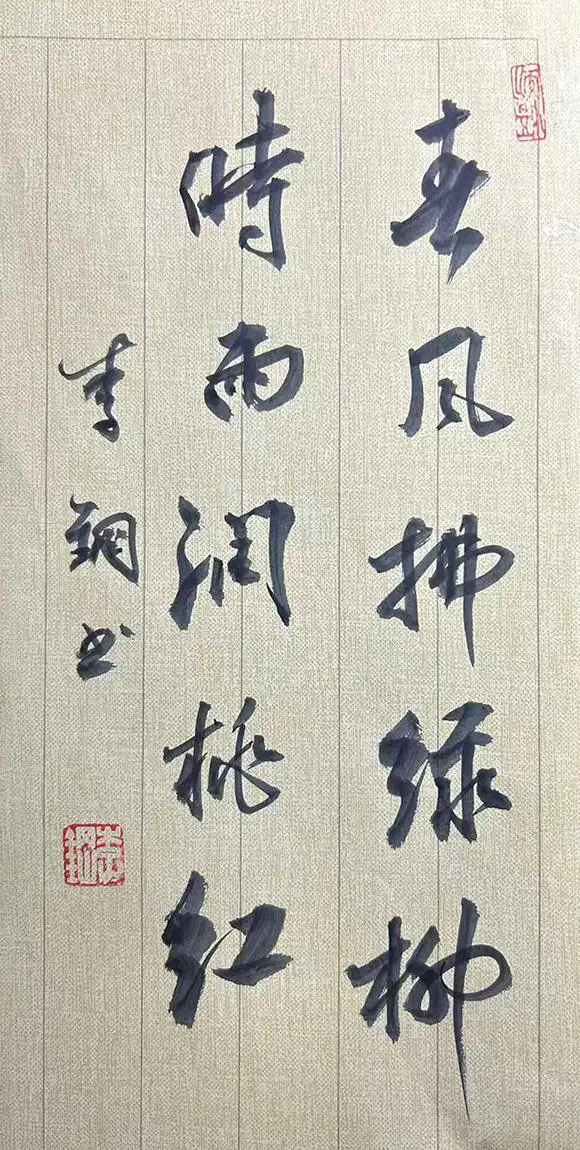 春风拂绿柳
時雨润桃红
李钢书